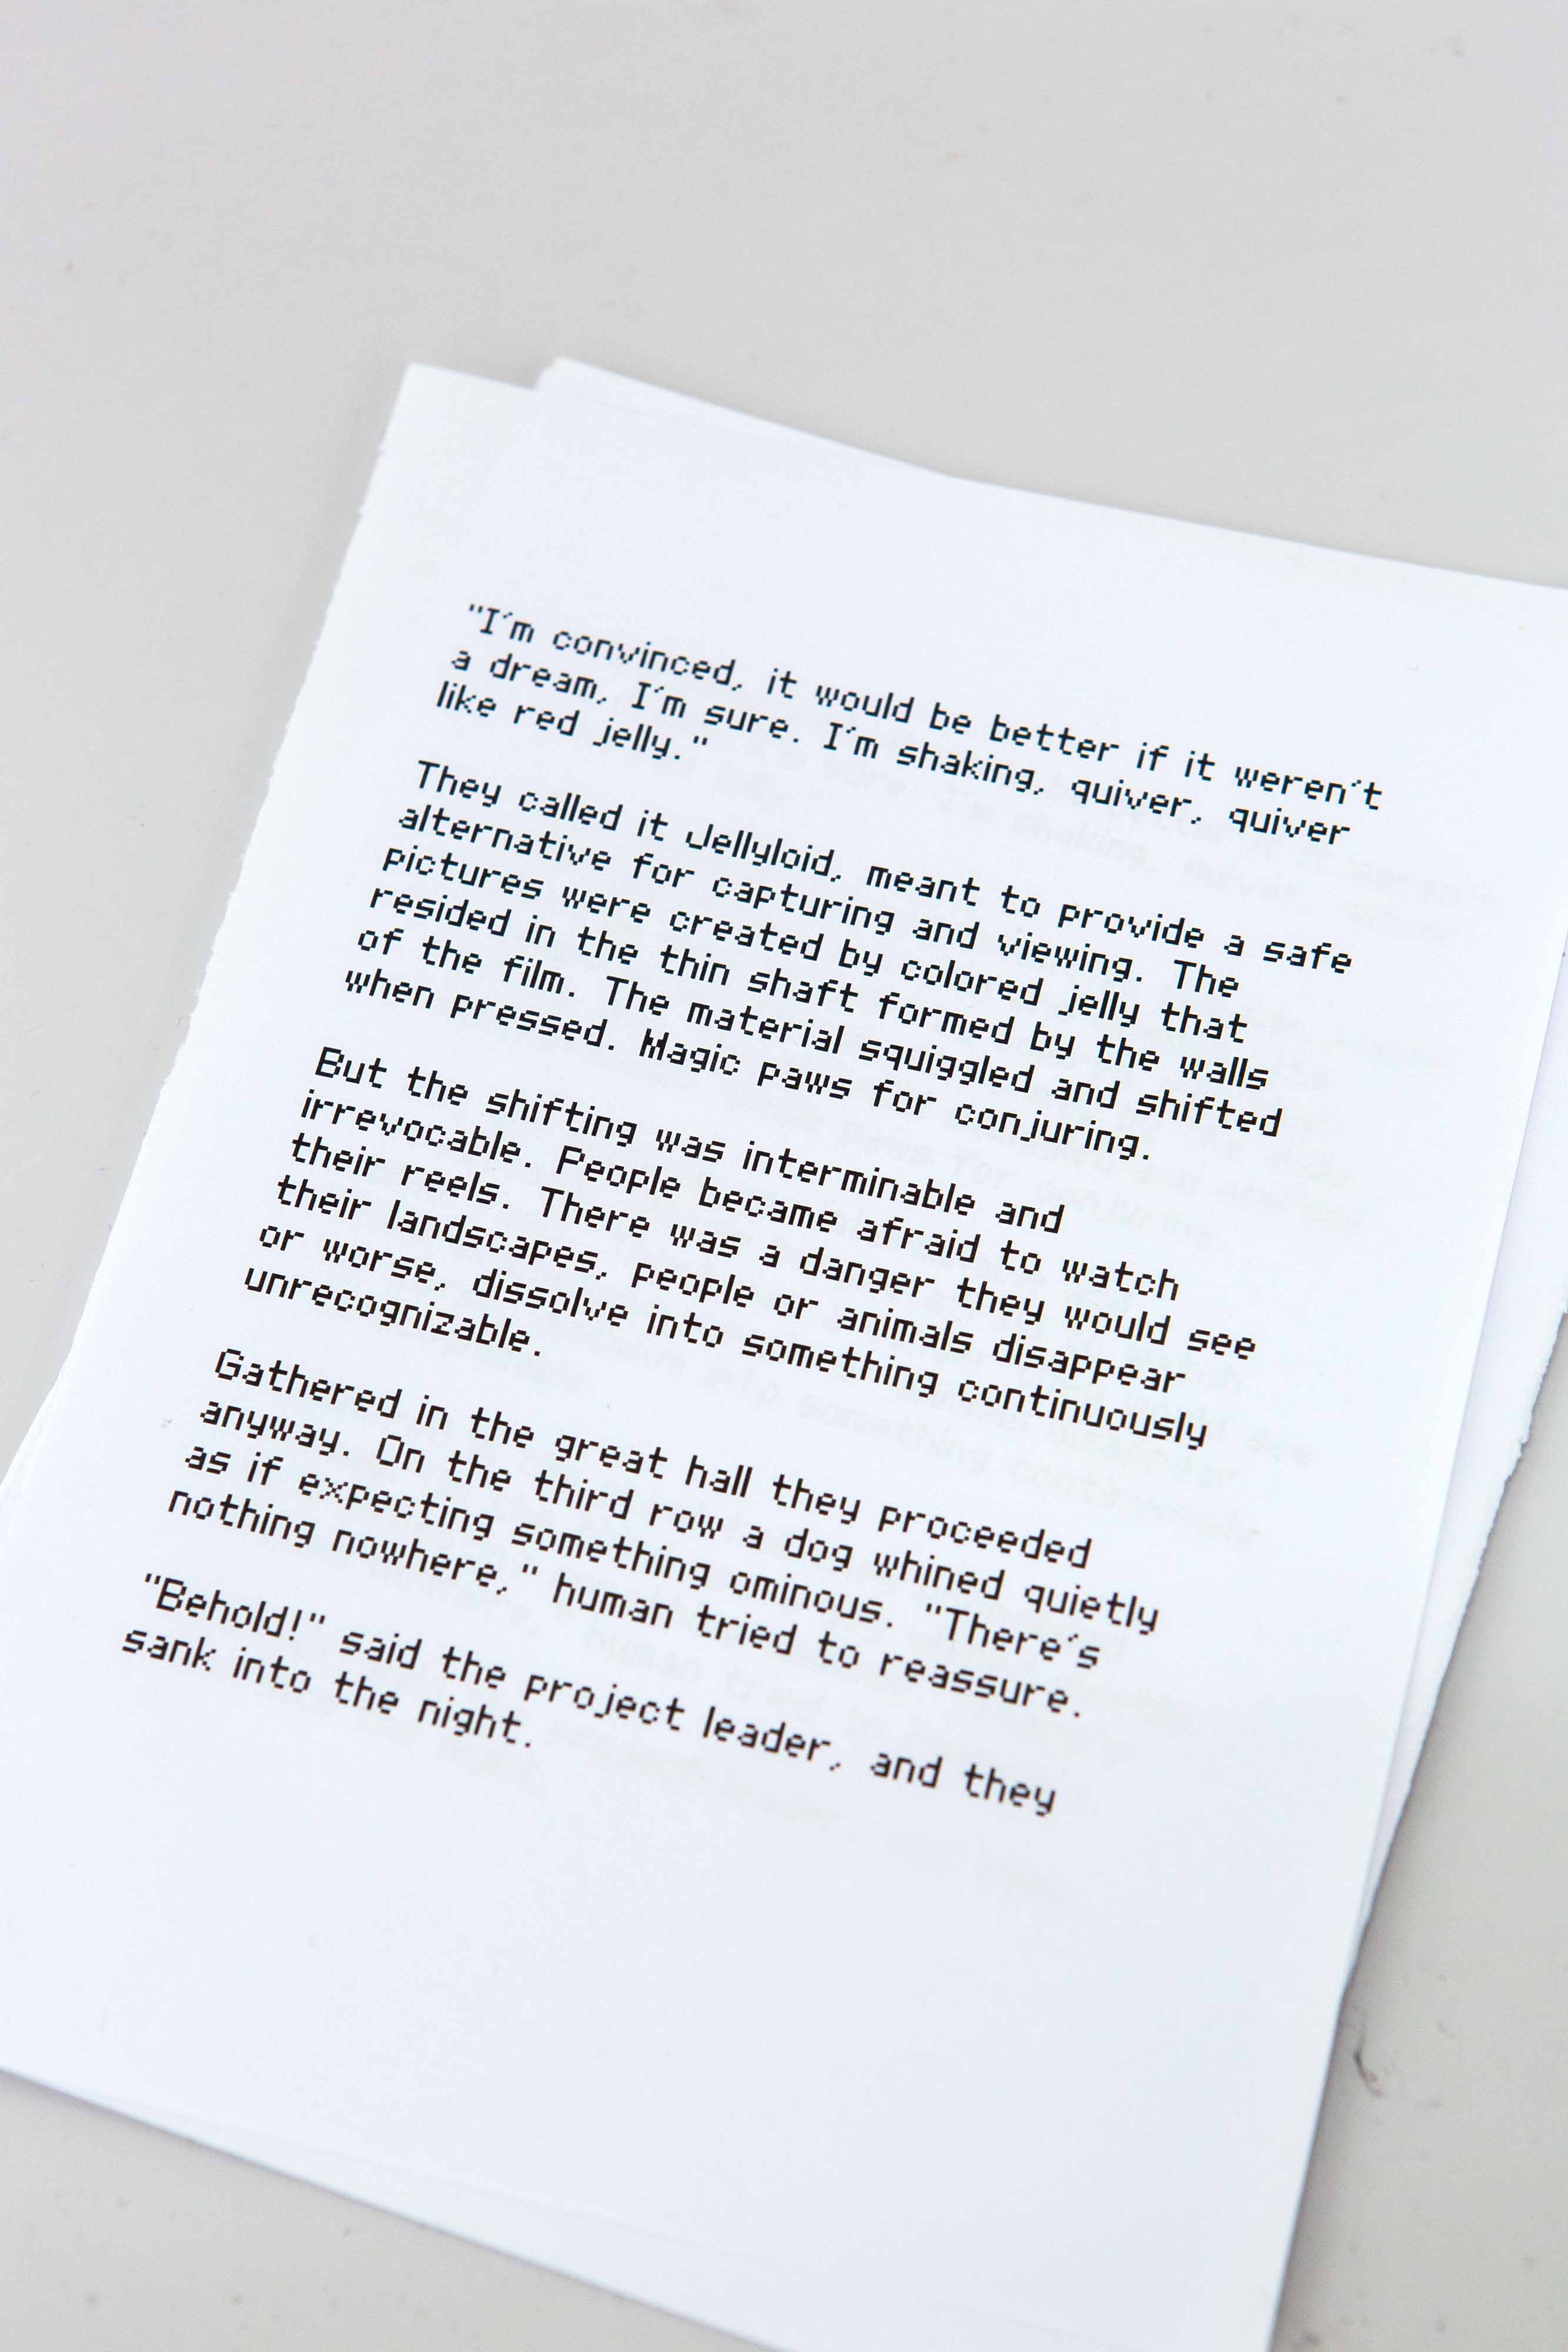 "I'm convinced, it would be better if it weren't
a dream, I'm sure. I'm shaking, quiver, quiver
like red jelly."
They called it Jellyloid, meant to provide a safe
alternative for capturing and viewing. The
pictures were created by colored jelly that
resided in the thin shaft formed by the walls
of the film. The material squiggled and shifted
when pressed. Magic paws for conjuring.
But the shifting was interminable and
irrevocable. People became afraid to watch
their reels. There was a danger they would see
their landscapes, people or animals disappear
or worse, dissolve into something continuously
unrecognizable.
Gathered in the great hall they proceeded
anyway. On the third row a dog whined quietly
as if expecting something ominous. "There's
nothing nowhere," human tried to reassure.
"Behold!" said the project leader, and they
sank into the night.